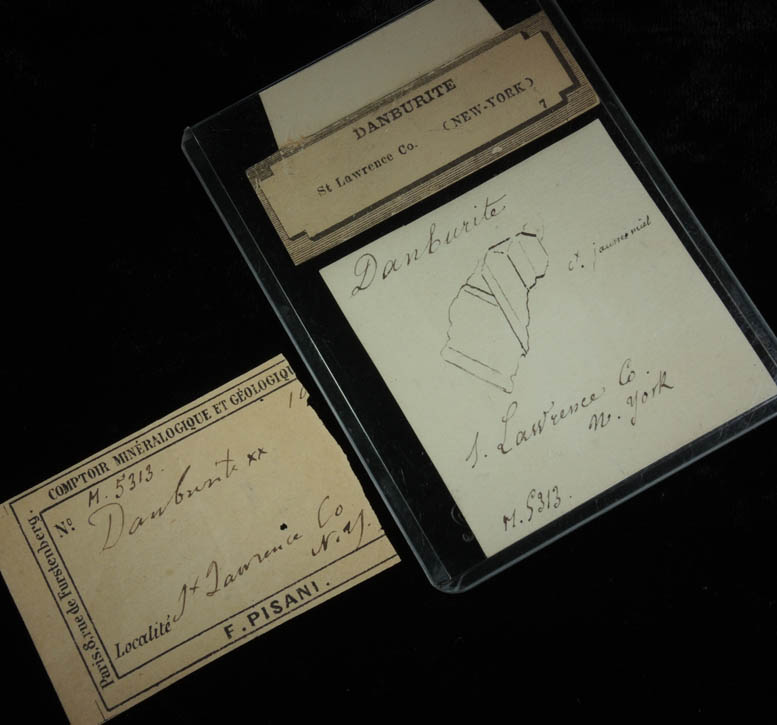 DANBURITE
St Lawrence Co. (NEW-YORK)
7
Danburite
S. Lawrence Co.
N. York
M.5313.
COMPTOIR MINÉRALOGIQUE ET GÉOLOGIQU
Paris, 8, rue de Furstenberg.
No M.5313.
Danburite xx
Localité St Lawrence Co
N.Y.
F. PISANI.